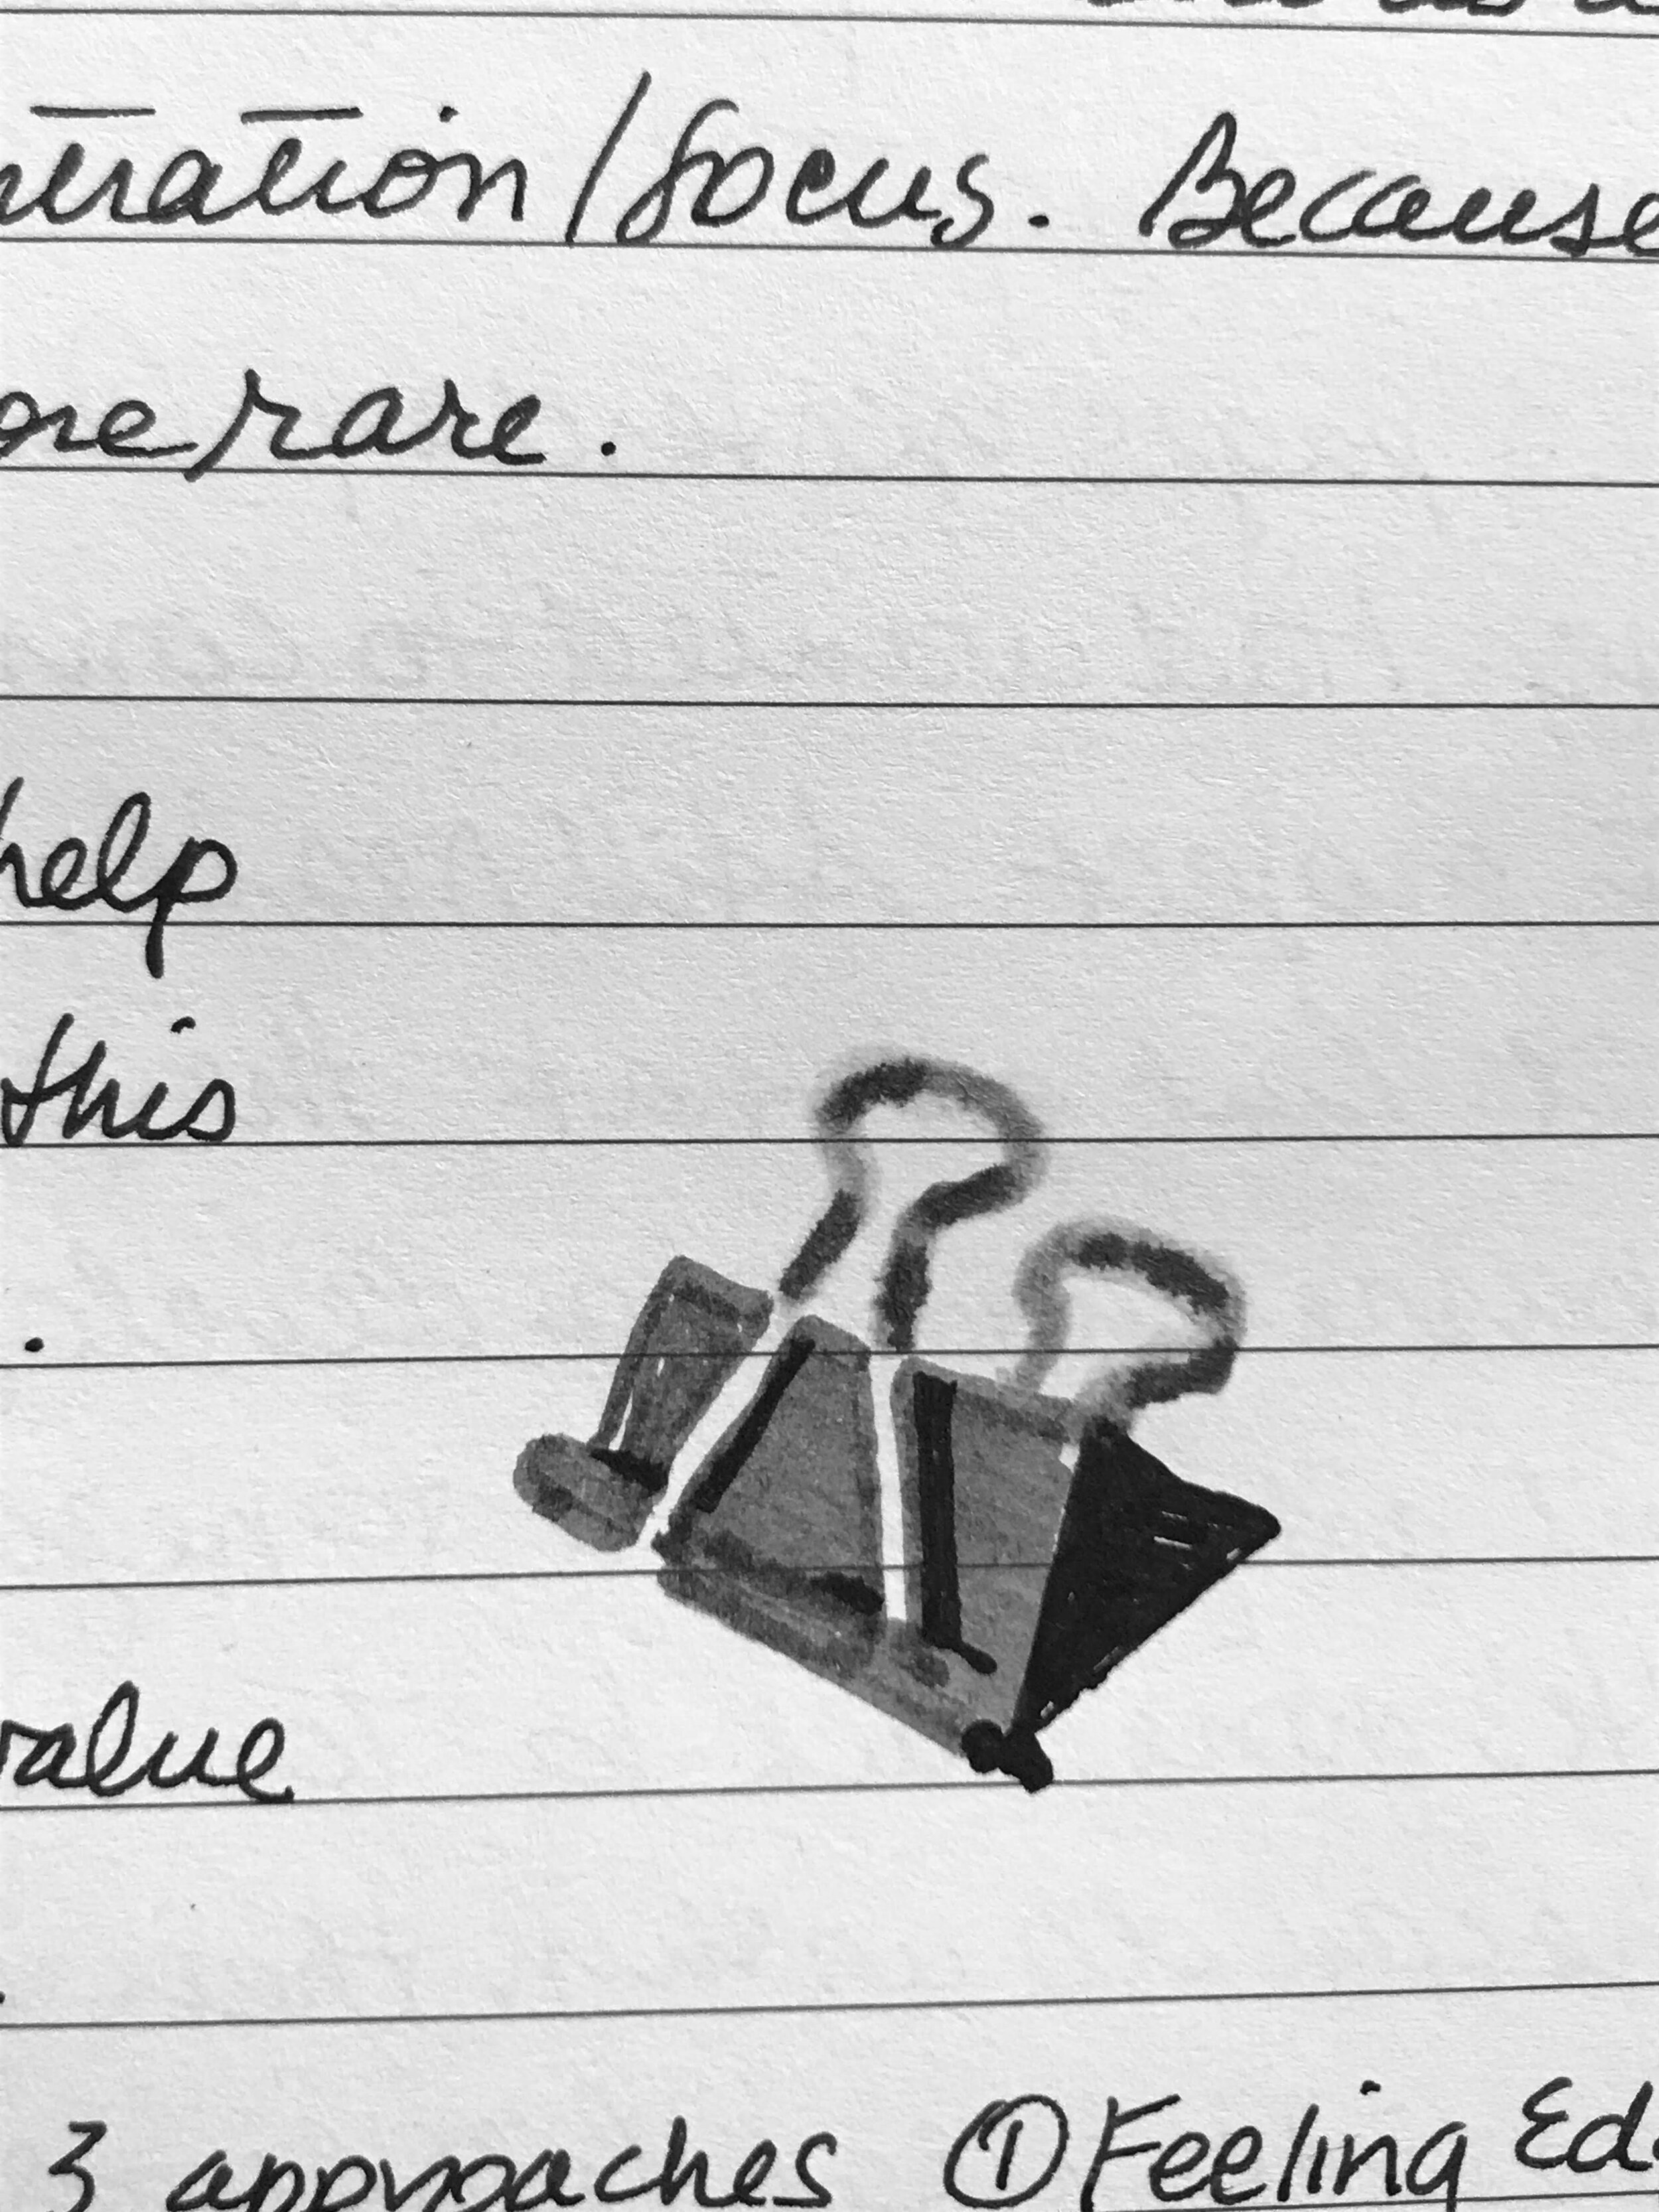 ntration/focus. Because
ore rare.
help
this
.
value
.
3 approaches ① Feeling Ed